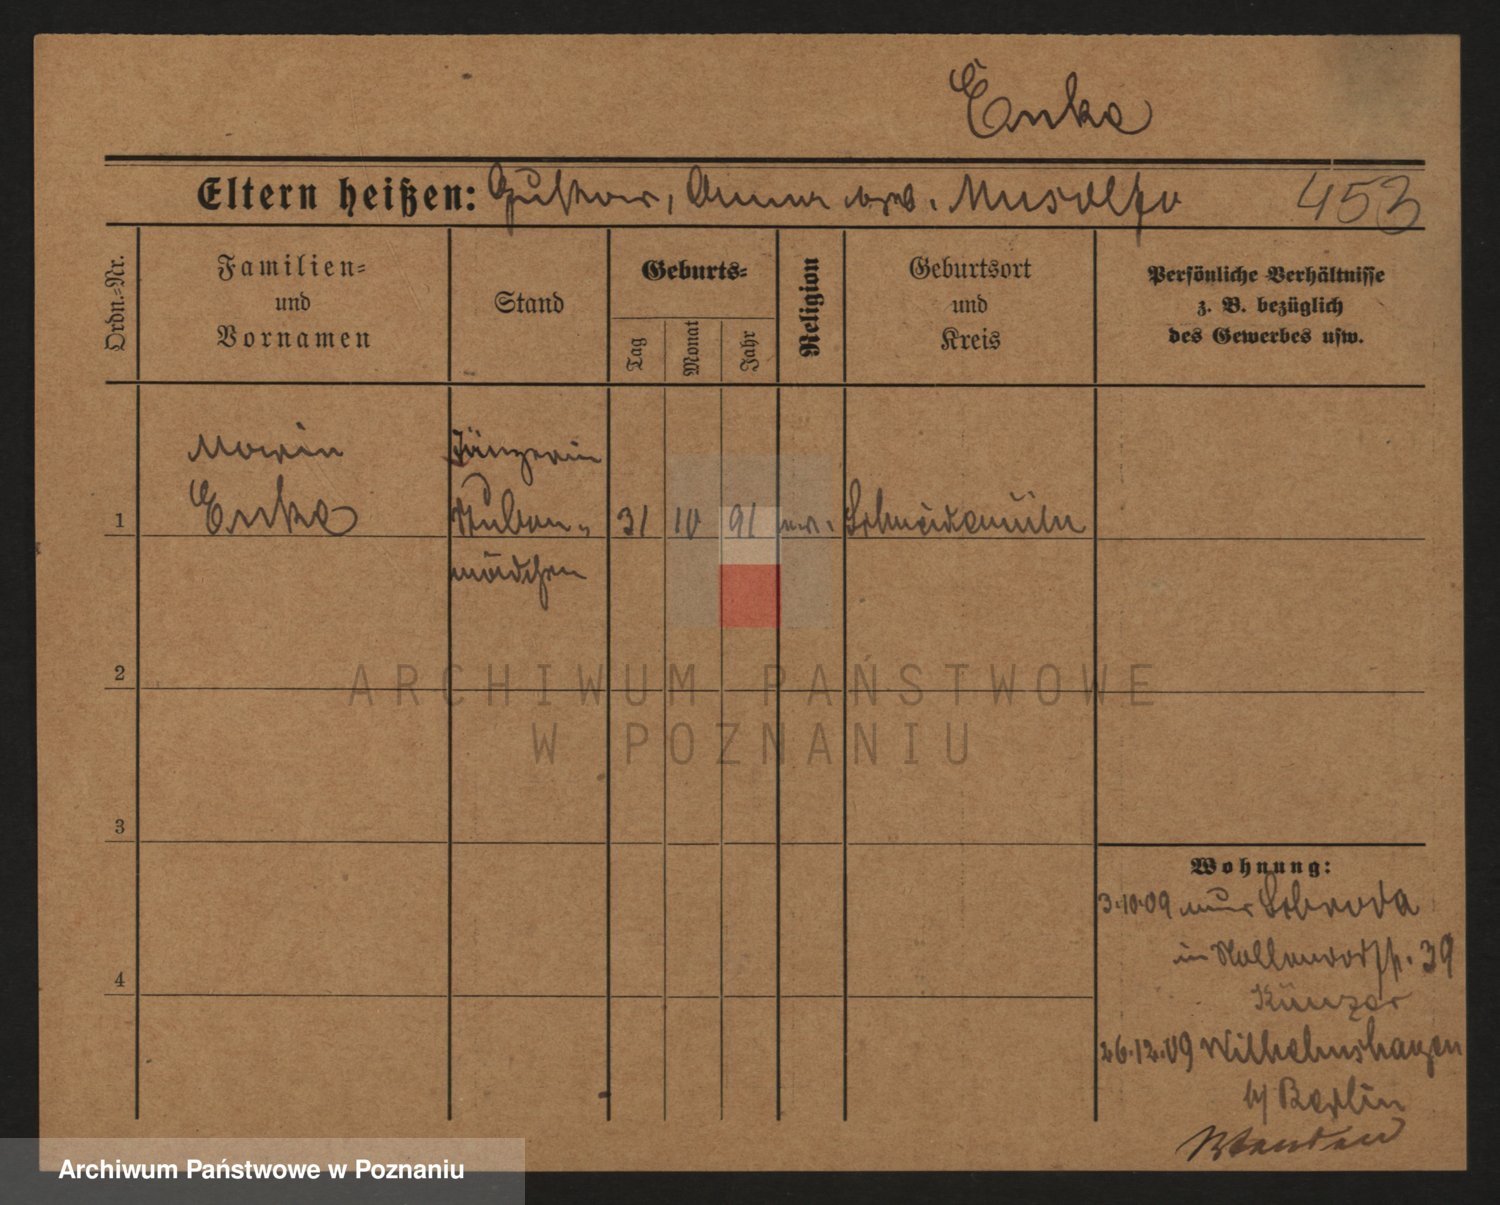 Enke
Eltern heißen: Gustav, Anna geb. Musolff 453
Ordn.-Nr.
Familien-
und
Vornamen
Stand
Geburts-
Tag
Monat
Jahr
Religion
Geburtsort
und
Kreis
Persönliche Verhältnisse
z. B. bezüglich
des Gewerbes usw.
Marin
Enke
Stuben-
mädchen
1
31 10 91 ev. Schneidemühl
2
3
4
Wohnung:
3.10.09 Schroda
in 39
26.12.09 Wilhelmshagen
b/ Berlin
ARCHIWUM PAŃSTWOWE
W POZNANIU
Archiwum Państwowe w Poznaniu